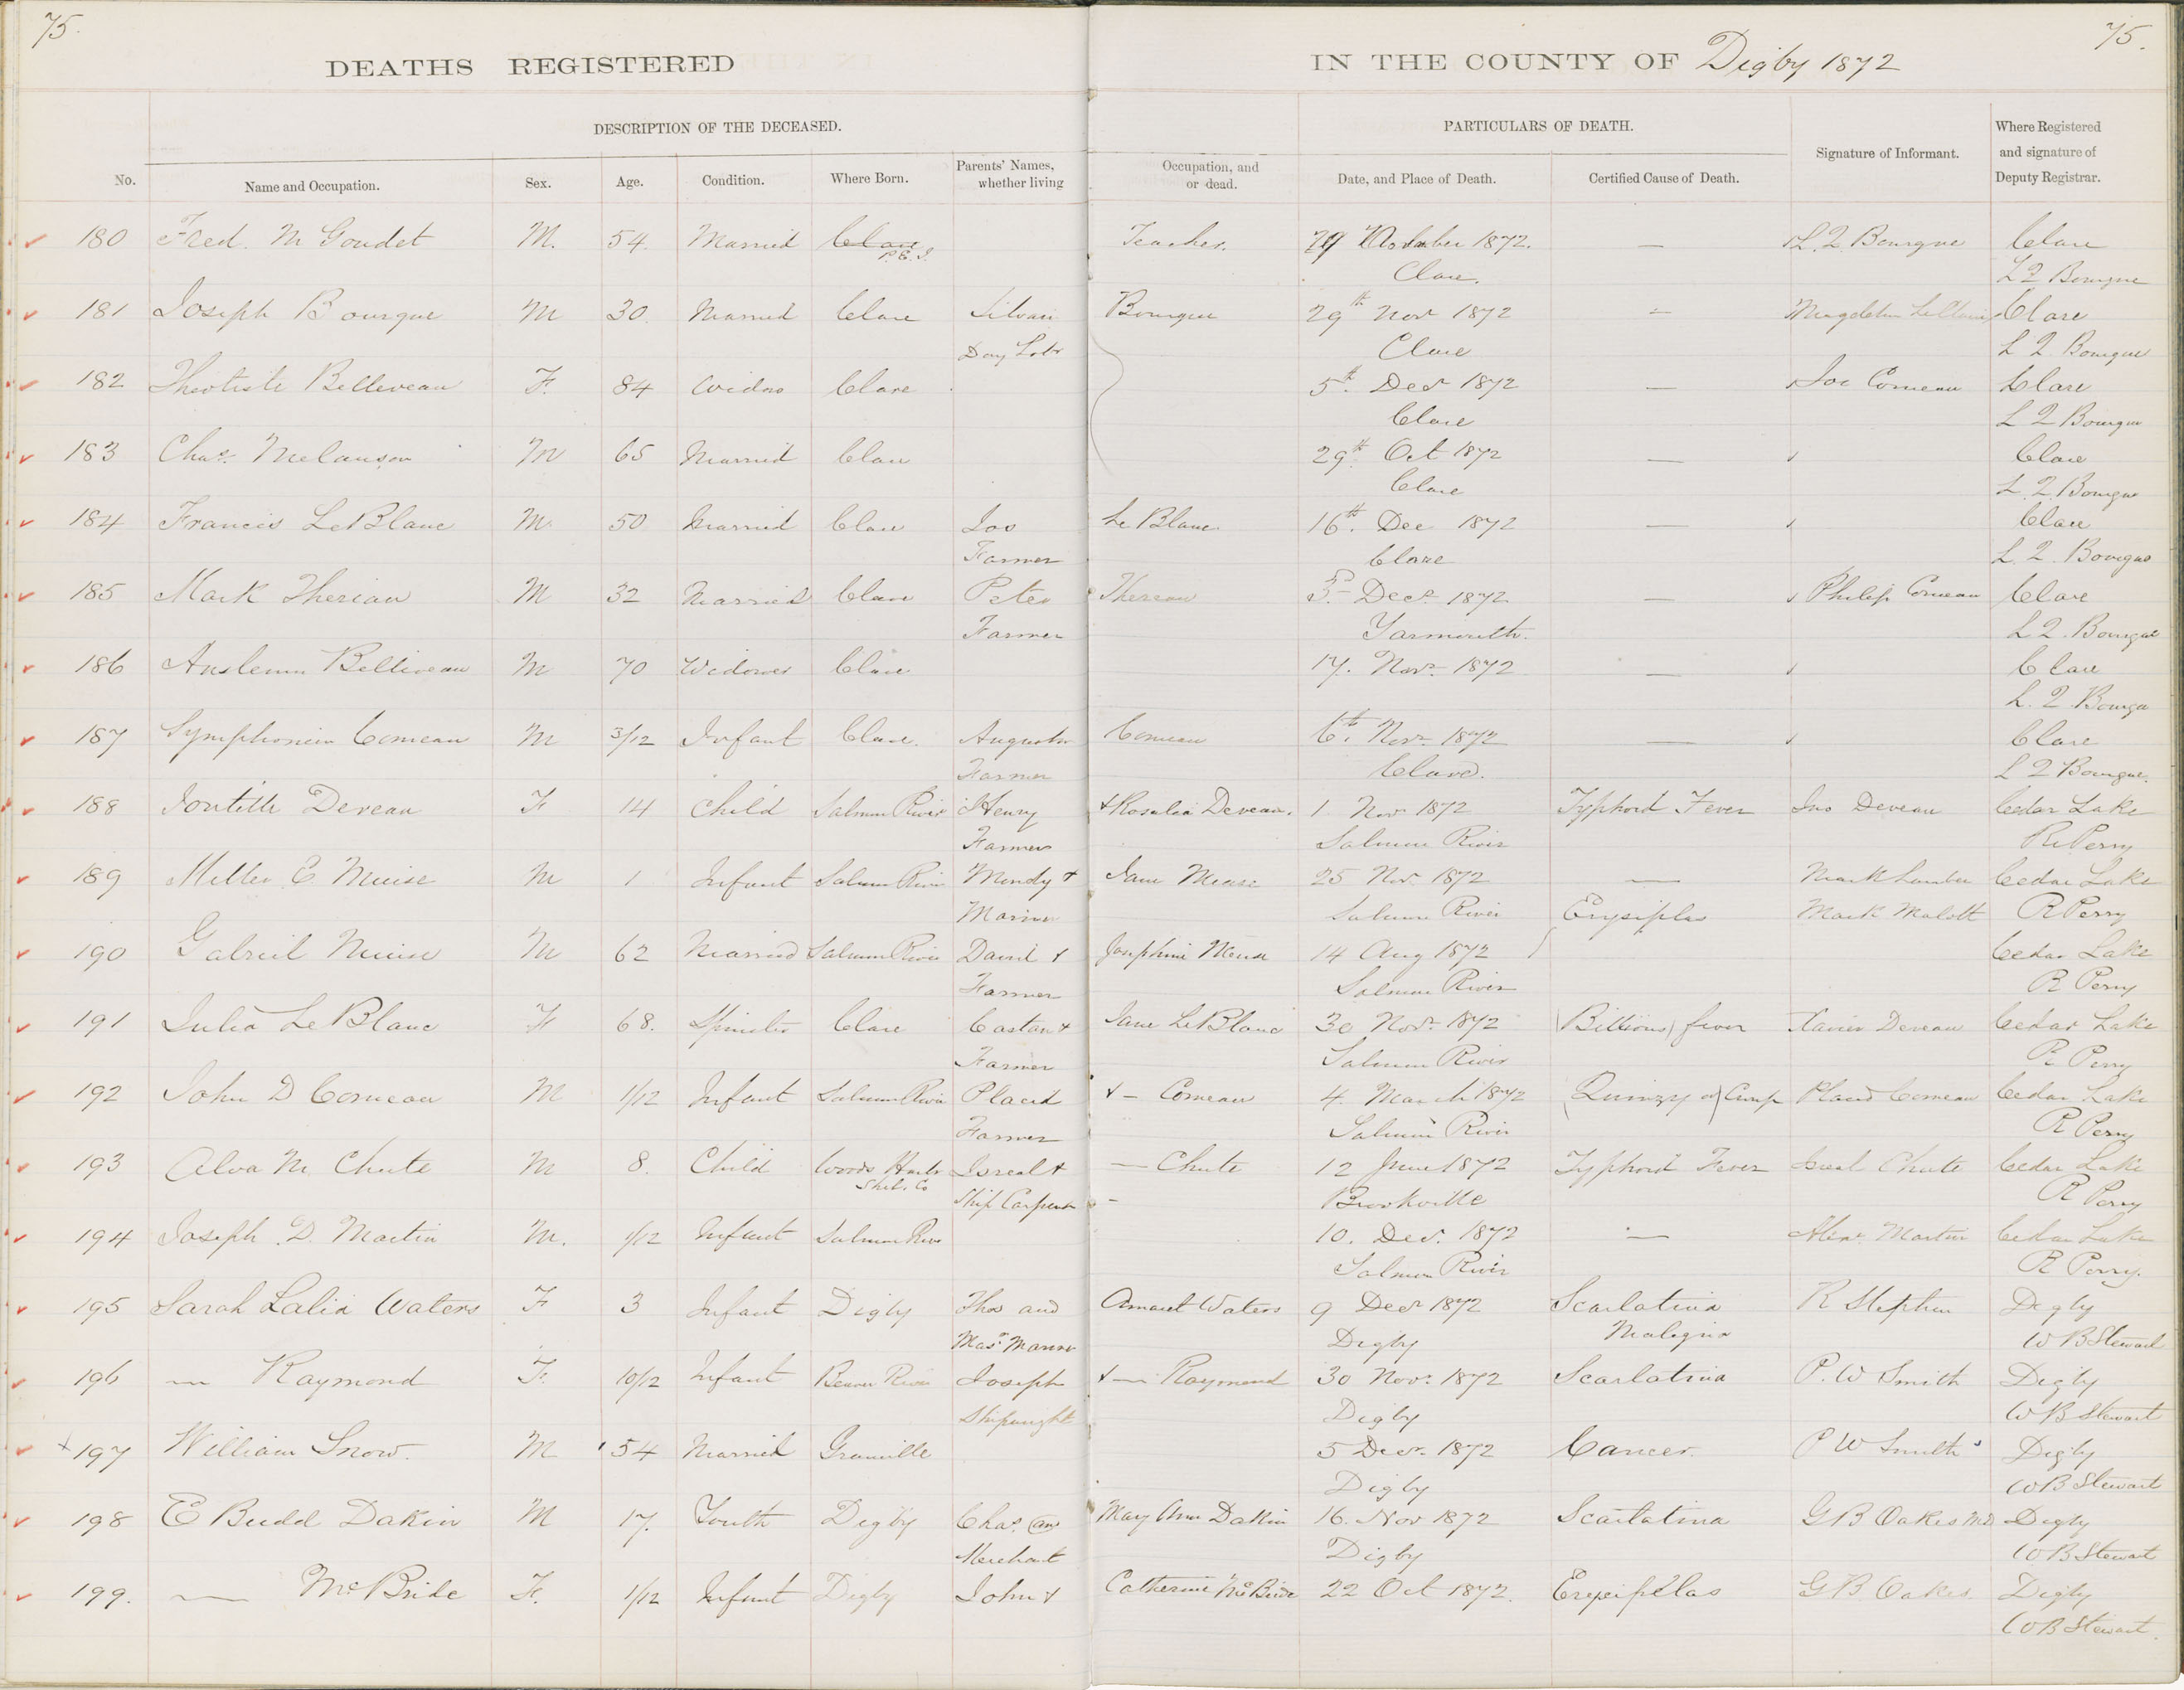 75.
75.
DEATHS REGISTERED IN THE COUNTY OF Digby 1872
DESCRIPTION OF THE DECEASED. PARTICULARS OF DEATH.
No. Name and Occupation. Sex. Age. Condition. Where Born. Parents' Names, whether living Occupation, and or dead. Date, and Place of Death. Certified Cause of Death. Signature of Informant. Where Registered and signature of Deputy Registrar.
180 Fred. M Goudet M. 54. Married Clare Teacher. October 1872. — L. Q. Bourque Clare
P.E.I. Clare. L Q Bourque
181 Joseph Bourque M 30 Married Clare Silvain Bourque 29th Nov 1872 — Clare
Day Labr Clare L Q Bourque
182 Theotiste Belleveau F. 84 Widow Clare 5th. Decr 1872 — Joe Comeau Clare
Clare L Q Bourque
183 Chas. Melanson M 65 Married Clare 29th Oct 1872 — Clare
Clare L. Q. Bourque
184 Francis LeBlanc M. 50 Married Clare Jos Le Blanc 16th. Dec 1872 — Clare
Farmer Clare L. Q. Bourque
185 Mark Theriau M 32 Married Clare Peter Thereau 5. Decr 1872 — Philip Comeau Clare
Farmer Yarmouth. L Q. Bourque
186 Belliveau M 70 Widower Clare 17. Novr 1872 — Clare
L. Q. Bourque
187 Comeau M 3/12 Infant Clare. Augustin Comeau 6th. Novr 1872 — Clare
Farmer Clare. L Q Bourque.
188 Deveau F 14 Child Salmon River Henry & Rosalia Deveau. 1 Nov 1872 Typhoid Fever Jno Deveau Cedar Lake
Farmer Salmon River R Perry
189 C. Muise M 1 Infant Salmon River Mendy & Jane Meuse 25 Nov 1872 — Cedar Lake
Mariner Salmon River Erysiplas Mark R Perry
190 Gabriel Muise M 62 Married Salmon River David & Josephine Meuse 14 Aug 1872 Cedar Lake
Farmer Salmon River R Perry
191 Julia Le Blanc F 68. Spinster Clare & Jane LeBlanc 30 Novr 1872 (Billious) fever Xavier Deveau Cedar Lake
Farmer Salmon River R Perry
192 John D Comeau M 1/12 Infant Salmon River Placid & — Comeau 4. March 1872 (Quinzy or) Croup Placid Comeau Cedar Lake
Farmer Salmon River R Perry
193 Alva M. Chute M 8. Child Woods Harbr Isreal & — Chute 12 June 1872 Typhoid Fever Isreal Chute Cedar Lake
Shel. Co Ship Carpenter — Brookville R Perry
194 Joseph. D. Martin M. 1/12 Infant Salmon River 10. Dec. 1872 — Martin Cedar Lake
Salmon River R Perry.
195 Sarah Lalia Waters F 3 Infant Digby Thos and Waters 9 Decr 1872 Scarlatina R Stephen Digby
Masr Marinr Digby Maligna W B Stewart
196 — Raymond F. 10/12 Infant Beaver River Joseph & — Raymond 30 Novr 1872 Scarlatina P. W Smith Digby
Shipwright Digby W B Stewart
x 197 William Snow. M 54 Married Granville 5 Decr. 1872 Cancer. P W Smith Digby
Digby W B Stewart
198 E Budd Dakin M 17. Youth Digby Chas. and Mary Ann Dakin 16. Nov 1872 Scarlatina G B Oakes MD Digby
Merchant Digby W B Stewart
199. — McBride F. 1/12 Infant Digby John & Catherine McBride 22 Oct 1872. Erysipelas G B Oakes. Digby
W B Stewart.